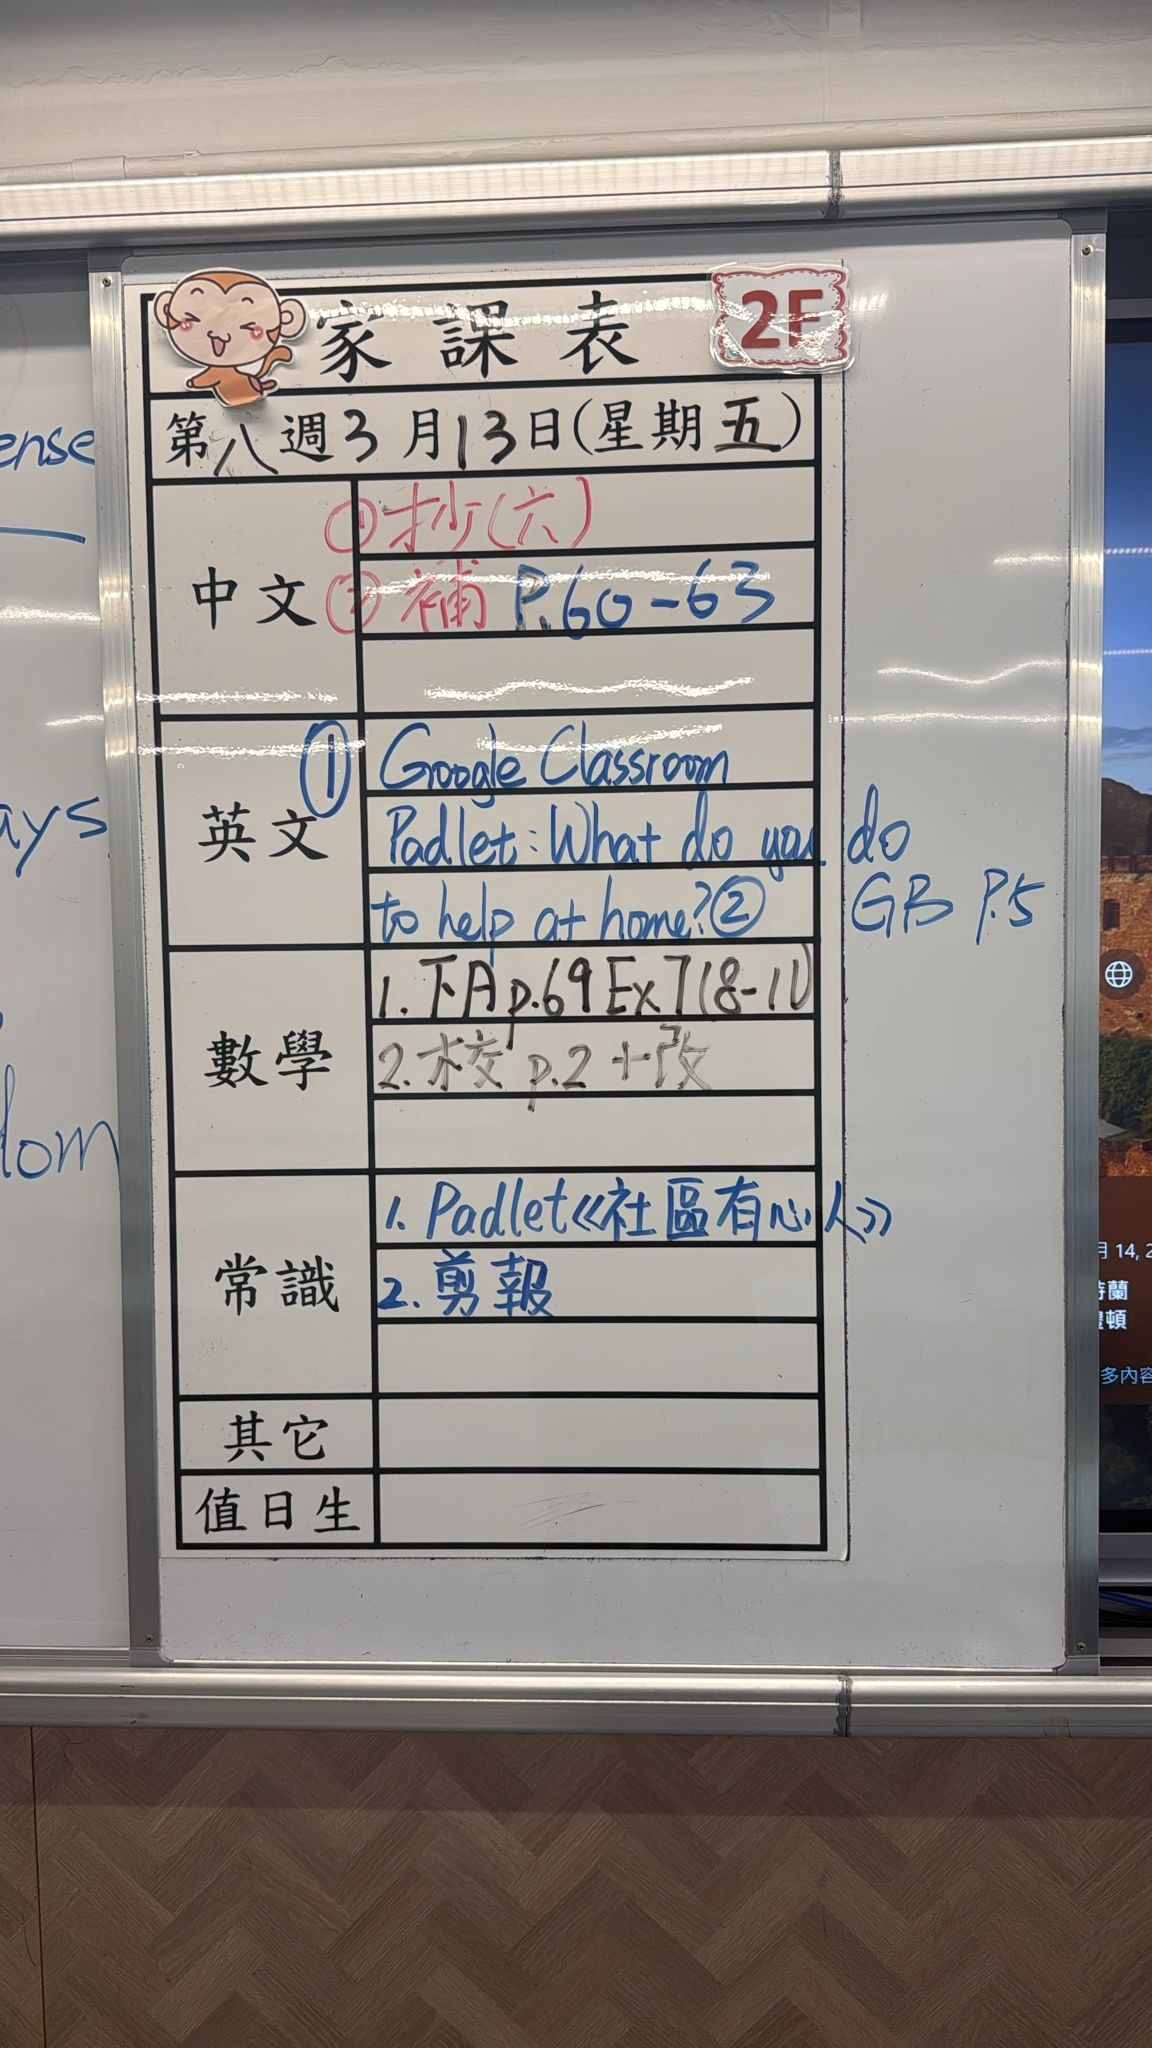 家課表 2F
第八週3月13日(星期五)
中文
① 抄(六)
② 補 P.60-63
英文
① Google Classroom
Padlet: What do you do
to help at home? ② GB P.5
數學
1. 下A p.69 Ex7(8-11)
2. 校 p.2 +改
常識
1. Padlet《社區有心人》
2. 剪報
其它
值日生
ense
ays
dom
月 14, 2
多內容